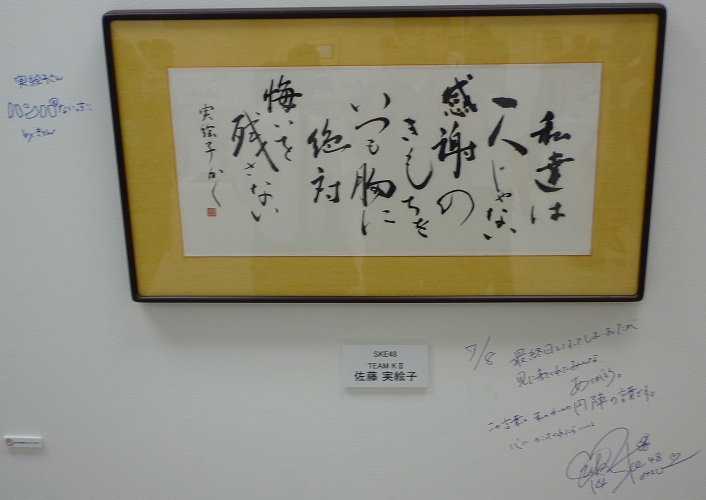 私達は
一人じゃない
感謝の
きもちを
いつも胸に
絶対
悔いを
残さない
実絵子かく
実絵子さん
ハンパないっす!!
by
SKE48
TEAM KⅡ
佐藤 実絵子
7/8 最終日となってしまいましたが
見に来てくれたみんな
ありがとう。
この言葉は 円陣の言葉です。
SKE48